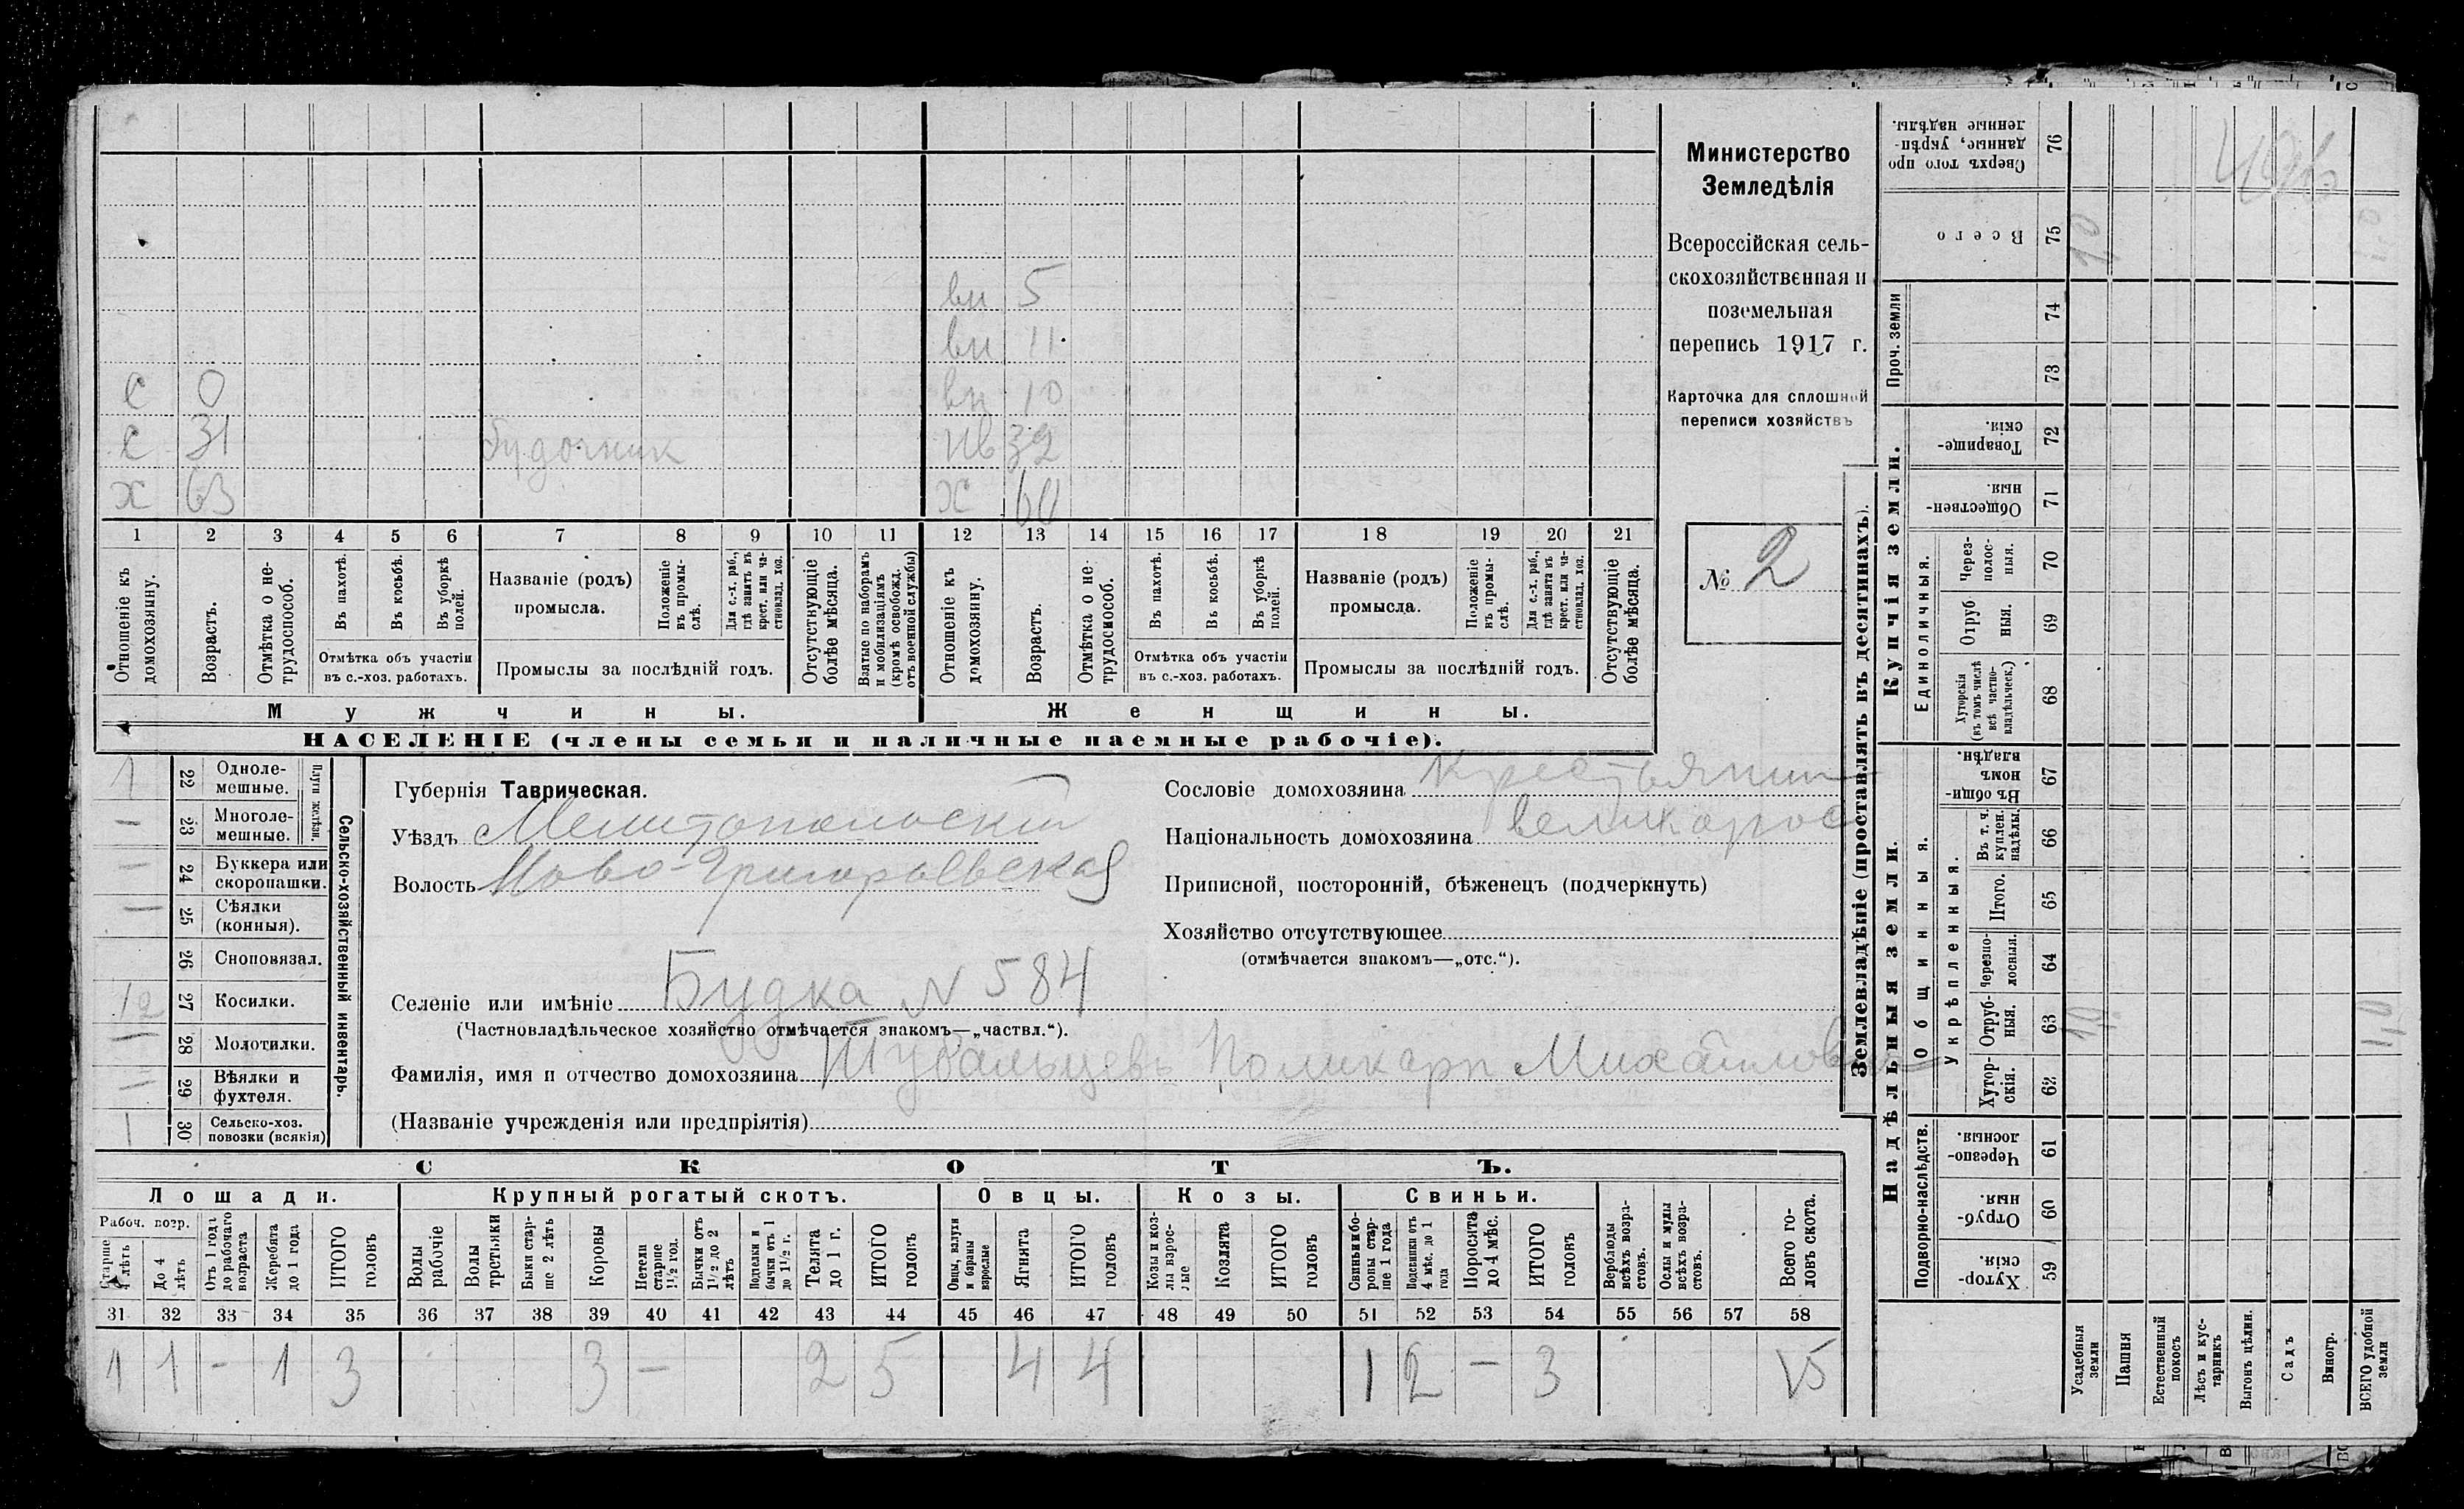 Министерство
Земледѣлія
Всероссійская сель-
скохозяйственная и
поземельная
перепись 1917 г.
Карточка для сплошной
переписи хозяйствъ
№ 2
вн 5
вн 11
с 0 вн 10
с 31 будочник нв 32
х 63 х 60
1 2 3 4 5 6 7 8 9 10 11 12 13 14 15 16 17 18 19 20 21
Отношеніе къ домохозяину.
Возрастъ.
Отмѣтка о не-трудоспособ.
Въ пахотѣ.
Въ косьбѣ.
Въ уборкѣ полей.
Отмѣтка объ участіи въ с.-хоз. работахъ.
Названіе (родъ) промысла.
Положеніе въ промы-слѣ.
Для с.-х. раб., гдѣ занятъ въ крест. или ча-стновлад. хоз.
Промыслы за послѣдній годъ.
Отсутствующіе болѣе мѣсяца.
Взятые по наборамъ и мобилизаціямъ (кромѣ освобожд. отъ военной службы)
Отношеніе къ домохозяину.
Возрастъ.
Отмѣтка о не-трудоспособ.
Въ пахотѣ.
Въ косьбѣ.
Въ уборкѣ полей.
Отмѣтка объ участіи въ с.-хоз. работахъ.
Названіе (родъ) промысла.
Положеніе въ промы-слѣ.
Для с.-х. раб., гдѣ занята въ крест. или ча-стновлад. хоз.
Промыслы за послѣдній годъ.
Отсутствующіе болѣе мѣсяца.
Мужчины. Женщины.
НАСЕЛЕНІЕ (члены семьи и наличные наемные рабочіе).
Сельско-хозяйственный инвентарь.
Плуги желѣзн.
1 22 Одноле-мешные.
— 23 Многоле-мешные.
— 24 Буккера или скоропашки.
— 25 Сѣялки (конныя).
26 Сноповязал.
27 Косилки.
28 Молотилки.
29 Вѣялки и фухтеля.
1 30 Сельско-хоз. повозки (всякія)
Губернія Таврическая.
Уѣздъ Мелитопольскій
Волость Ново-Григорьевская
Селеніе или имѣніе Будка N 584
(Частновладѣльческое хозяйство отмѣчается знакомъ—„частвл.“).
Фамилія, имя и отчество домохозяина Шубальцевъ Поликарп Михайлович
(Названіе учрежденія или предпріятія)
Сословіе домохозяина крестьянин
Національность домохозяина великорос
Приписной, посторонній, бѣженецъ (подчеркнуть)
Хозяйство отсутствующее
(отмѣчается знакомъ—„отс.“).
СКОТЪ.
Лошади. Крупный рогатый скотъ. Овцы. Козы. Свиньи.
Рабоч. возр.
Старше 4 лѣтъ
До 4 лѣтъ
Отъ 1 года до рабочаго возраста
Жеребята до 1 года
ИТОГО головъ
Волы рабочіе
Волы третьяки
Быки стар-ше 2 лѣтъ
Коровы
Нетели старше 1½ год.
Бычки отъ 1½ до 2 лѣтъ
Телята до 1 г.
ИТОГО головъ
Овцы, валухи и бараны взрослые
Ягнята
ИТОГО головъ
Козы и коз-лы взрос-лые
Козлята
ИТОГО головъ
Свиньи и бо-ровы стар-ше 1 года
Подсвинки отъ 4 мѣс. до 1 года
Поросята до 4 мѣс.
ИТОГО головъ
Верблюды всѣхъ возра-стовъ.
Ослы и мулы всѣхъ возра-стовъ.
Всего го-ловъ скота.
31 32 33 34 35 36 37 38 39 40 41 42 43 44 45 46 47 48 49 50 51 52 53 54 55 56 57 58
1 1 - 1 3 3 — 2 5 4 4 1 2 — 3 15
Землевладѣніе (проставлять въ десятинахъ).
Сверхъ того про-данные, укрѣп-ленные надѣлы. 76
Всего 75
Проч. земли 74 73
Купчія земли.
Товарище-скія. 72
Обществен-ныя. 71
Единоличныя.
Через-полос-ныя. 70
Отруб-ныя. 69
Хуторскія (въ томъ числѣ всѣ частно-владѣльческ.) 68
Надѣльныя земли.
Общинныя.
Въ общи-номъ владѣн. 67
Укрѣпленныя.
Въ т. ч. куплен. надѣлы. 66
Итого. 65
Черезпо-лосныя. 64
Отруб-ныя. 63
Хутор-скія. 62
Подворно-наслѣдств.
Черезпо-лосныя. 61
Отруб-ныя. 60
Хутор-скія. 59
Усадебныя земли
Пашня
Естественный покосъ
Лѣсъ и кус-тарникъ
Выгонъ цѣлин.
Садъ
Виногр.
ВСЕГО удобной земли